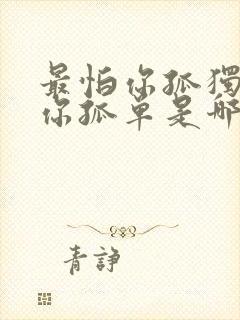 最怕你孤獨
你孤單是哪
青諍